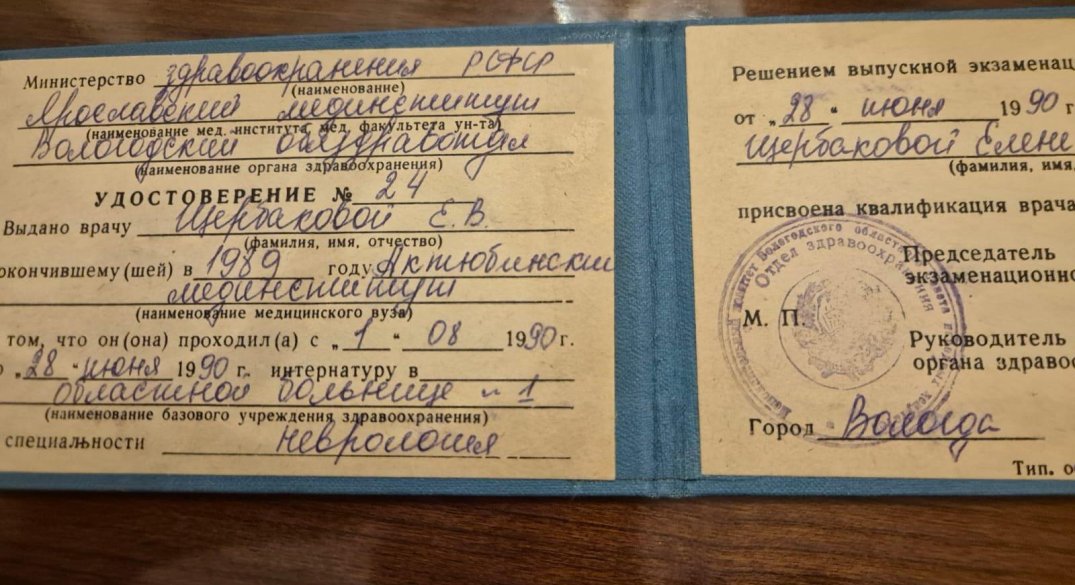 Министерство здравоохранения РСФСР
(наименование)
Ярославский мединститут
(наименование мед. института, мед. факультета ун-та)
Вологодский облздравотдел
(наименование органа здравоохранения)
УДОСТОВЕРЕНИЕ № 24
Выдано врачу Щербаковой Е. В.
(фамилия, имя, отчество)
окончившему (шей) в 1989 году Актюбинский
мединститут
(наименование медицинского вуза)
том, что он (она) проходил (а) с „1" 08 1990 г.
„28" июня 1990 г. интернатуру в
областной больнице № 1
(наименование базового учреждения здравоохранения)
специальности неврология
Решением выпускной экзаменац
от „28" июня 1990 г
Щербаковой Елене
(фамилия, имя,
присвоена квалификация врача
Председатель
экзаменационно
М. П.
Руководитель
органа здравоо
Город Вологда
Тип. о
Отдел здравоохранения